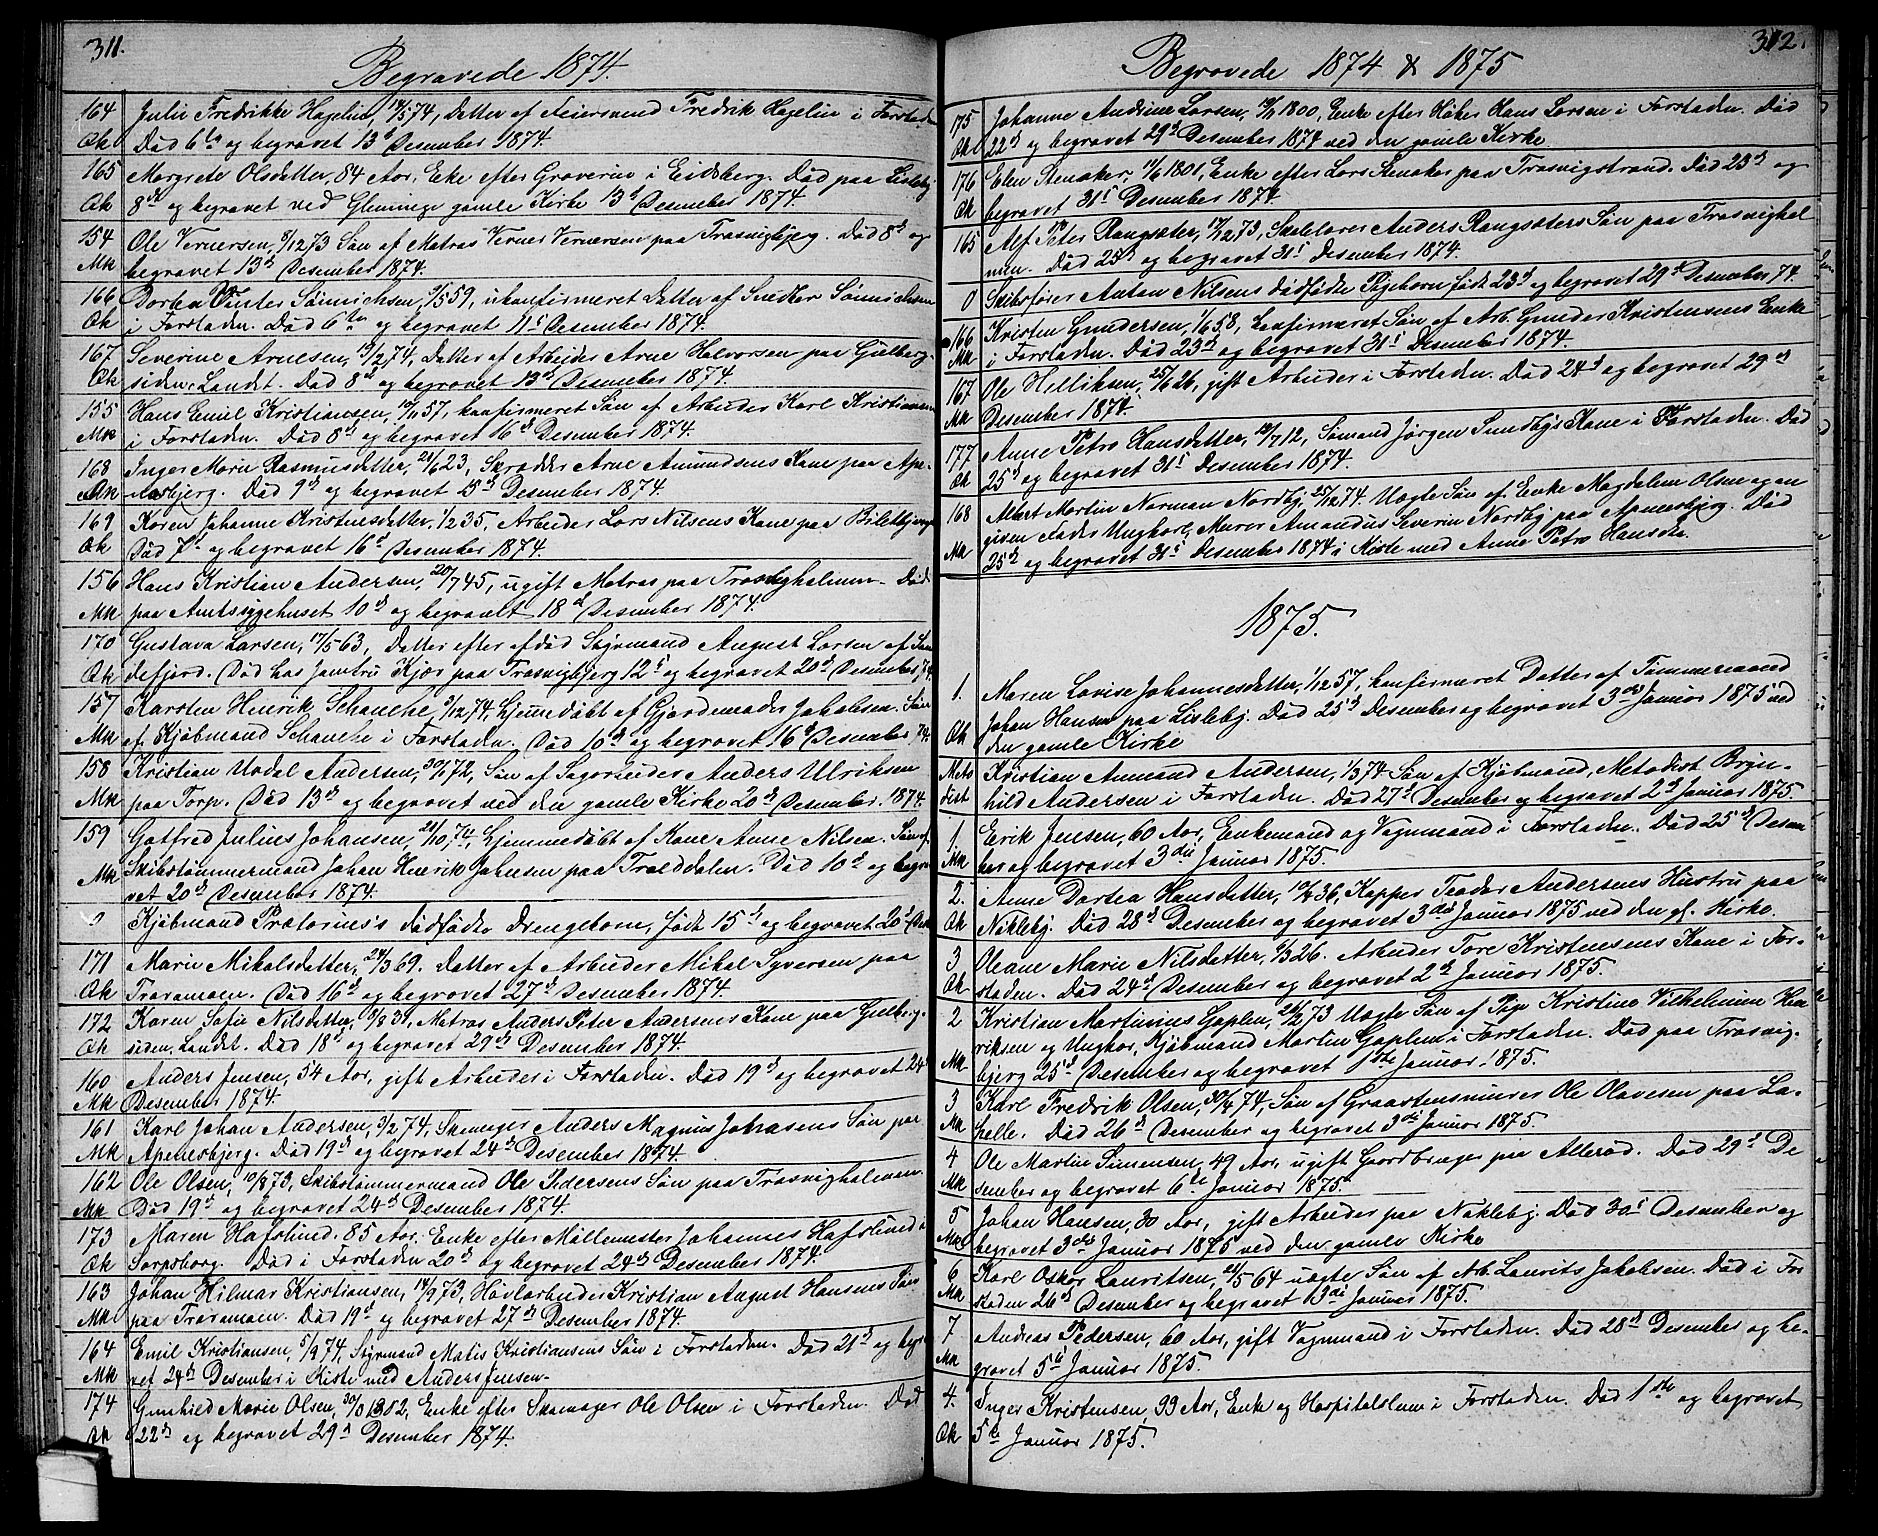 311.
Begravede 1874.
164 Julie Fredrikke Hagelin, 14/5 74, Datter af Feiersvend Fredrik Hagelin i Forstaden
Qk Död 6te og begravet 13d Desember 1874.
165 Margrete Olsdatter, 84 Aar, Enke efter Graverin i Eidsberg. Död paa Lisleby
Qk 8d og begravet ved Glemminge gamle Kirke 13d Desember 1874.
154 Ole Vernersen, 8/12 73 Sön af Matros Verner Vernersen paa Trosvigbjerg. Död 8d og
Mk begravet 13d Desember 1874.
166 Dortea Vinter Sönnichsen, 5 59, ukonfirmeret Datter af Snedker Sönnichsen
Qk i Forstaden. Död 6te og begravet 11t Desember 1874.
167 Severine Arnesen, 13/2 74, Datter af Arbeider Arne Halvorsen paa Gulberg-
Qk siden, Landet. Död 8d og begravet 13d Desember 1874.
155 Hans Emil Kristiansen, 57, konfirmeret Sön af Arbeider Karl Kristiansen
Mk i Forstaden. Död 8d og begravet 16d Desember 1874.
168 Inger Marie Rasmusdatter, 21/6 23, Skrædder Arne Amundsens Kone paa Ape-
Qk nesbjerg. Död 9d og begravet 15d Desember 1874.
169 Karen Johanne Kristensdatter, 1/2 35, Arbeider Lars Nilsens Kone paa
Qk Död 7d og begravet 16d Desember 1874.
156 Hans Kristian Andersen, 20/7 45, ugift Matros paa Trosvigholmen. Död
Mk paa Amtssygehuset 10d og begravet 18d Desember 1874.
170 Gustava Larsen, 17/5 63, Datter efter afdöd Styrmand August Larsen af San
Qk defjord. Död hos Jomfru Kjær paa Trosvigbjerg 12t og begravet 20d Desember 74.
157 Karsten Henrik Schanche 9/12 74, hjemmedöbt af Gjordemoder Jakobsen. Sön
Mk af Kjöbmand Schanche i Forstaden. Död 10d og begravet 16d Desember 74.
158 Kristian Andersen, 30/1 72, Sön af Sagarbeider Anders Ulriksen
Mk paa Torp. Död 13d og begravet ved den gamle Kirke 20d Desember. 1874.
159 Gotfred Julius Johansen, 21/10 74, hjemmedöbt af Kone Anne Nilsen. Sön af
Mk Skibstömmermand Johan Henrik Johansen paa Trolddalen. Död 10d og begra
vet 20d Desember 1874.
0 Kjöbmand Prætorius's dödfödte Drengebarn, födt 15d og begravet 20d Des
171 Marie Mikalsdatter, 24/3 69. Datter af Arbeider Mikal Syversen paa
Qk Traramoen. Död 16d og begravet 27d Desember 1874.
172 Karen Sofie Nilsdatter, 8/8 31, Matros Anders Peter Andersens Kone paa Gulberg-
Qk siden, Landet. Död 18d og begravet 29d Desember 1874.
160 Anders Jensen, 54 Aar, gift Arbeider i Forstaden. Död 19d og begravet 24d
Mk Desember 1874.
161 Karl Johan Andersen, 3/2 74, Skomager Anders Magnus Johnsens Sön paa
Mk Apenesbjerg. Död 19d og begravet 24d Desember 1874.
162 Ole Olsen, 10/8 73, Skibstömmermand Ole Pedersens Sön paa Trosvigholmen
Mk Död 19d og begravet 24d Desember 1874.
173 Maren Hafslund, 85 Aar. Enke efter Möllemester Johannes Hafslund i
Qk Sarpsborg. Död i Forstaden 20d og begravet 24d Desember 1874.
163 Johan Hilmar Kristiansen, 14/9 73, Hövlarbeider Kristian August Hansens Sön
Mk paa Traramoen. Död 19d og begravet 27d Desember 1874.
164 Emil Kristiansen, 5/9 74, Styrmand Matis Kristiansens Sön i Forstaden. Död 21d og begra
Mk vet 24d Desember i Kiste med Anders Jensen.
174 Gunhild Marie Olsen, 30/10 1802, Enke efter Skomager Ole Olsen i Forstaden. Död
Qk 22d og begravet 29d Desember 1874.
312.
Begravede 1874 & 1875
175 Johanne Andrine Larsen, 1800, Enke efter Höker Hans Larsen i Forstaden. Död
Qk 22d og begravet 29d Desember 1874 ved den gamle Kirke
176 Elen Stenaker, 11/6 1801, Enke efter Lars Stenaker paa Trosvigstrand. Död 25d og
Qk begravet 31t Desember 1874.
165 Alf Peter Rangsæter, 12 73, Skolelærer Anders Rangsæters Sön paa Trosvighol
men. Död 25d og begravet 31t Desember 1874.
0 Skibsförer Anton Nilsens dödfödte Pigebarn födt 23d og begravet 29d Desember 74.
166 Kristen Gundersen, 1/6 58, konfirmeret Sön af Arb. Gunder Kristensens Enke
Mk i Forstaden. Död 23d og begravet 31t Desember 1874.
167 Ole Helliksen, 25/6 26, gift Arbeider i Forstaden. Död 24d og begravet 29d
Mk Desember 1874.
177 Anne Petra Hansdatter, 12/7 12, Sömand Jörgen Sundbys Kone i Forstaden. Död
Qk 25d og begravet 31t Desember 1874.
168 Albert Martin Norman Nordby, 25/12 74. Uægte Sön af Enke Magdalene Olsen og an
given Fader Ungkarl, Murer Amandus Severin Nordby paa Apenesbjerg. Död
Mk 25d og begravet 31t Desember 1874 i Kiste med Anne Petra Hansdtr.
1875.
1. Maren Lovise Johannesdatter, 1/12 57, konfirmeret Datter af Tömmermand
Johan Hansen paa Lisleby. Död 25d Desember og begravet 3die Januar 1875 ved
Qk den gamle Kirke
Meto Kristian Anmand Andersen, 1/3 74 Sön af Kjöbmand, Metodist Bryn-
dist hild Andersen i Forstaden. Död 27d Desember og begravet 2d Januar 1875.
1. Erik Jensen, 60 Aar, Enkemand og Vognmand i Forstaden. Död 25d Desem
Mk ber og begravet 3die Januar 1875.
2. Anne Dortea Hansdatter, 36, Kopper Teodor Andersens Hustru paa
Qk Nökleby. Död 28d Desember og begravet 3die Januar 1875 ved den gl. Kirke.
3 Oleane Marie Nilsdatter, 9/3 26. Arbeider Tore Kristensens Kone i For-
Qk staden. Död 24d Desember og begravet 2d Januar 1875.
2 Kristian Martinius Goplen, 21/12 73 Uægte Sön af Pige Kristine Vilhelmine Hen
riksen og Ungkar, Kjöbmand Martin Goplen i Forstaden. Död paa Trosvig-
Mk bjerg 25d Desember og begravet 1ste Januar 1875.
3 Karl Fredrik Olsen, 30/4 74, Sön af Graastensmurer Ole Olavesen paa La-
Mk helle. Död 26d Desember og begravet 3die Januar 1875.
4 Ole Martin Simensen, 49 Aar, ugift Gaardbruger paa Alleröd. Död 29d De
Mk sember og begravet 6te Januar 1875.
5 Johan Hansen, 30 Aar, gift Arbeider paa Nökleby. Död 30t Desember og
Mk begravet 3die Januar 1875 ved den gamle Kirke
6 Karl Oskar Lauritsen, 21/5 64 uægte Sön af Arb. Laurits Jakobsen. Död i For
Mk staden 26d Desember og begravet 13de Januar 1875.
7 Andreas Pedersen, 60 Aar, gift Vognmand i Forstaden. Död 28d Desember og be-
Mk gravet 5te Januar 1875.
4. Inger Kristensen, 99 Aar, Enke og Hospitalslem i Forstaden. Död 1ste og begravet
Qk 5te Januar 1875.